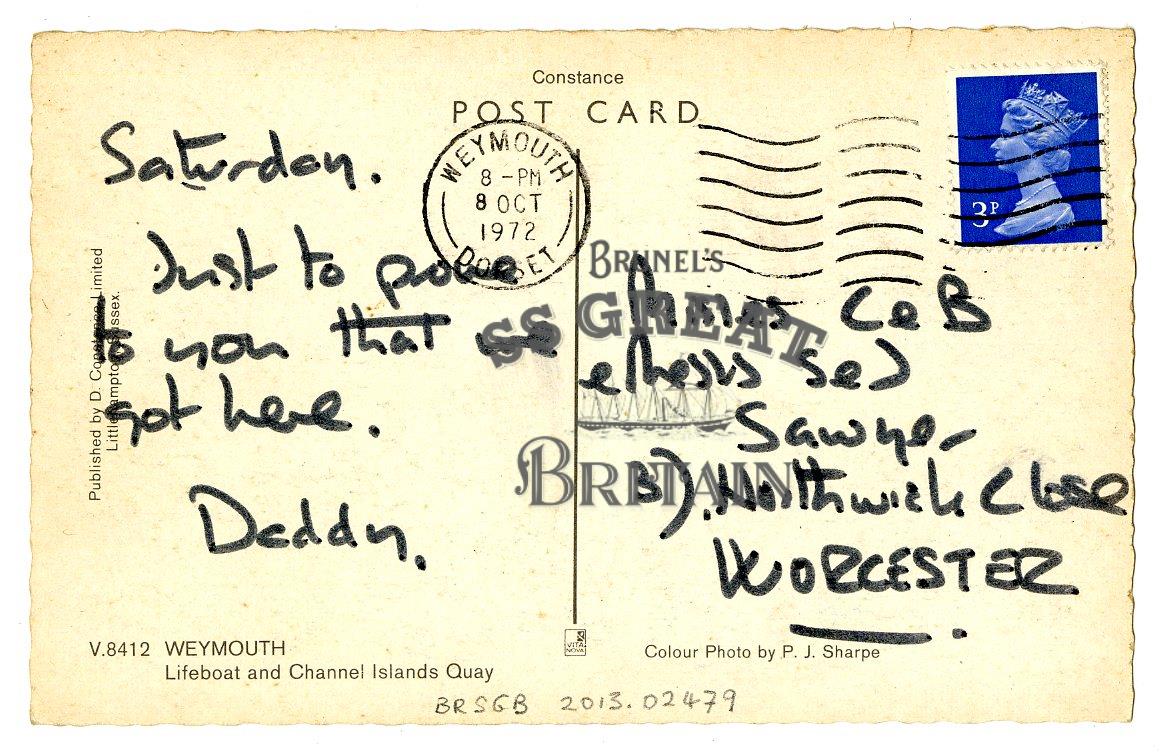 Constance
POST CARD
WEYMOUTH
8 - PM
8 OCT
1972
DORSET
3P
Saturday.
Just to prove
to you that we
got here.
Daddy.
C & B
Sawyer
Northwick Close
WORCESTER
BRUNEL'S
SS GREAT
BRITAIN
Published by D. Constance Limited
Littlehampton, Sussex.
V.8412 WEYMOUTH
Lifeboat and Channel Islands Quay
VITA
NOVA
Colour Photo by P. J. Sharpe
BRSGB 2013.02479